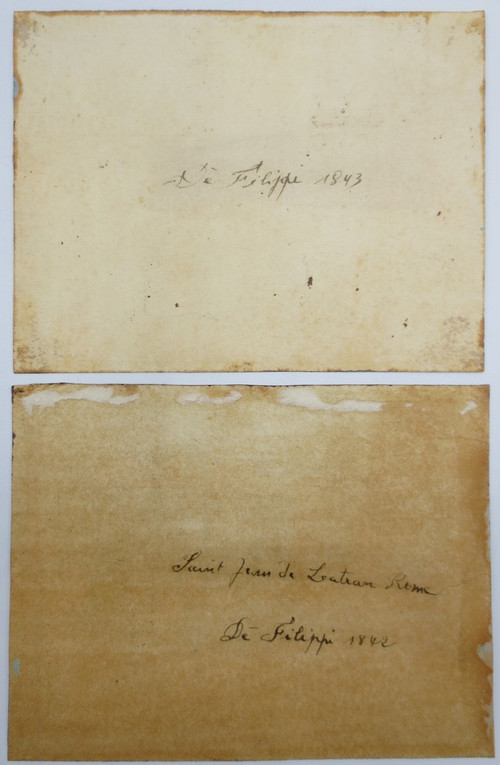 De Filippe 1843
Saint Jean de Leatran Rome
De Filippi 1842